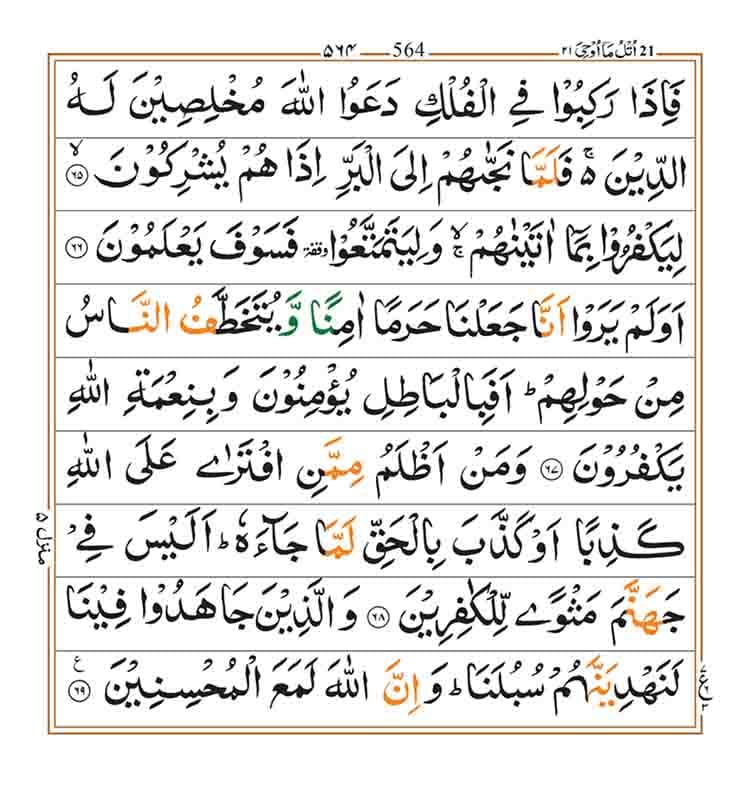 21 اُتْلُ مَا اُوْحِیَ ۲۱ 564 ۵۶۴
فَاِذَا رَكِبُوْا فِی الْفُلْكِ دَعَوُا اللّٰهَ مُخْلِصِیْنَ لَهُ
الدِّیْنَ ۵ۚ فَلَمَّا نَجّٰىهُمْ اِلَى الْبَرِّ اِذَا هُمْ یُشْرِكُوْنَ ۙ﴿۶۵﴾
لِیَكْفُرُوْا بِمَاۤ اٰتَیْنٰهُمْ ۙۚ وَ لِیَتَمَتَّعُوْا وقفة فَسَوْفَ یَعْلَمُوْنَ ﴿۶۶﴾
اَوَلَمْ یَرَوْا اَنَّا جَعَلْنَا حَرَمًا اٰمِنًا وَّ یُتَخَطَّفُ النَّاسُ
مِنْ حَوْلِهِمْ ؕ اَفَبِالْبَاطِلِ یُؤْمِنُوْنَ وَ بِنِعْمَةِ اللّٰهِ
یَكْفُرُوْنَ ﴿۶۷﴾ وَمَنْ اَظْلَمُ مِمَّنِ افْتَرٰى عَلَى اللّٰهِ
كَذِبًا اَوْ كَذَّبَ بِالْحَقِّ لَمَّا جَآءَهٗ ؕ اَلَیْسَ فِیْ
جَهَنَّمَ مَثْوًى لِّلْكٰفِرِیْنَ ﴿۶۸﴾ وَالَّذِیْنَ جَاهَدُوْا فِیْنَا
لَنَهْدِیَنَّهُمْ سُبُلَنَا ؕ وَ اِنَّ اللّٰهَ لَمَعَ الْمُحْسِنِیْنَ ﴿۶۹﴾ ع
منزل ۵